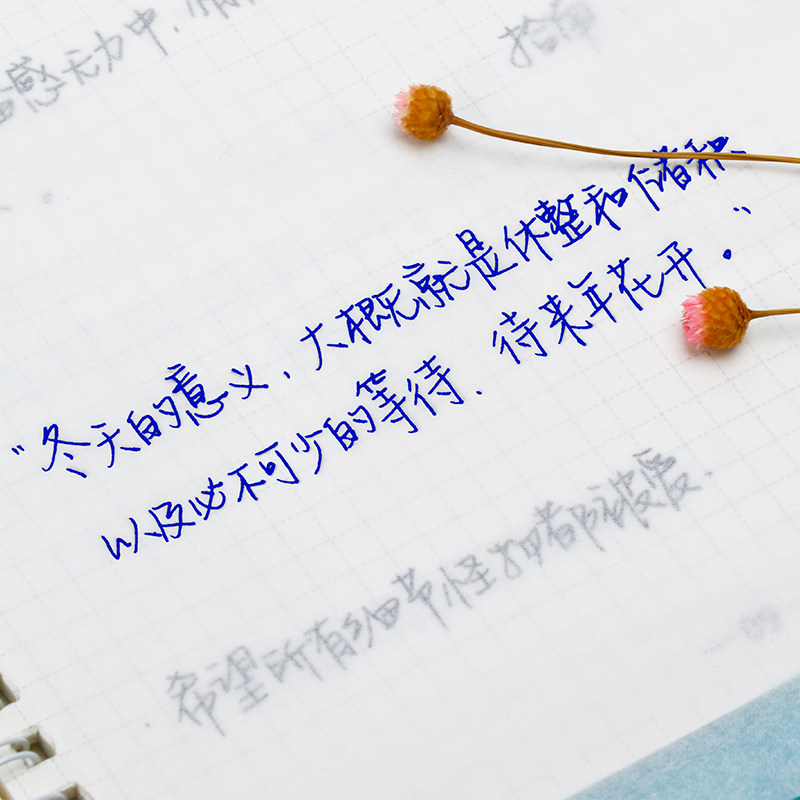 感无力中,情
拾
"冬天的意义,大概就是休整和储积、
以及必不可少的等待、待来年花开。"
希望所有细节怪
都被爱.